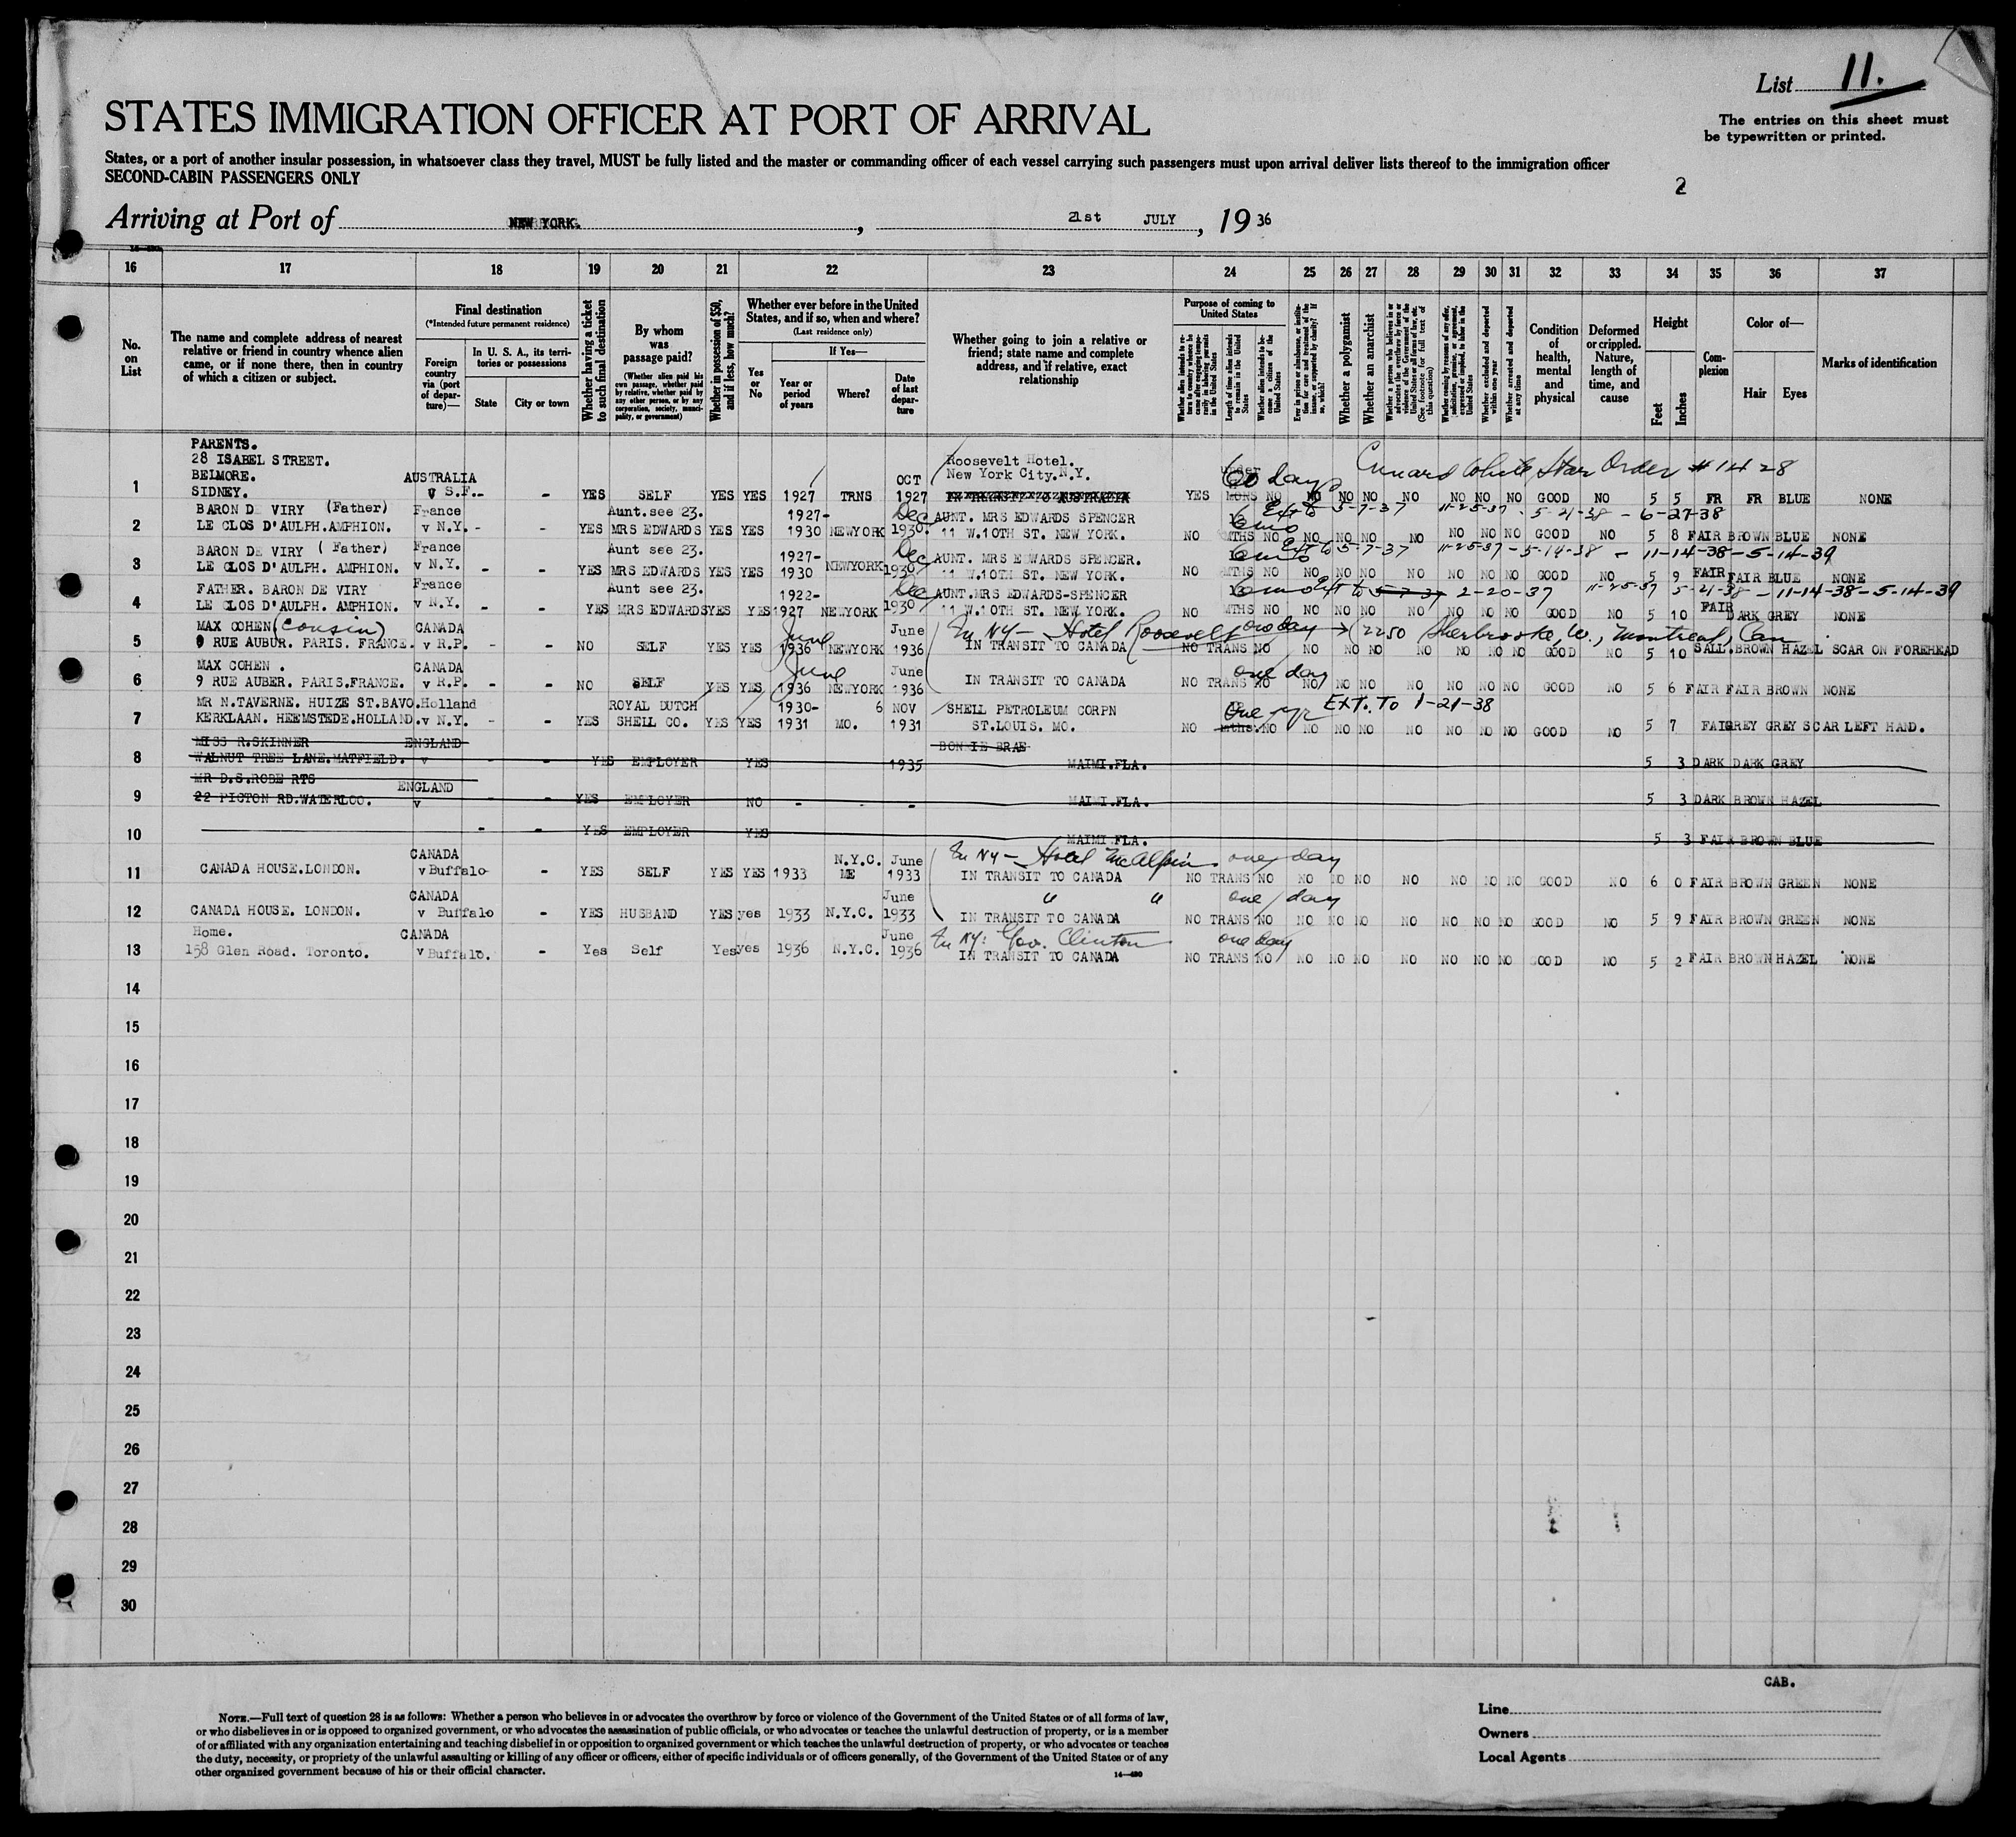 List 11.
STATES IMMIGRATION OFFICER AT PORT OF ARRIVAL
The entries on this sheet must
be typewritten or printed.
States, or a port of another insular possession, in whatsoever class they travel, MUST be fully listed and the master or commanding officer of each vessel carrying such passengers must upon arrival deliver lists thereof to the immigration officer
SECOND-CABIN PASSENGERS ONLY
2
Arriving at Port of NEW YORK. , 21st JULY , 19 36
16 17 18 19 20 21 22 23 24 25 26 27 28 29 30 31 32 33 34 35 36 37
No. on List
The name and complete address of nearest relative or friend in country whence alien came, or if none there, then in country of which a citizen or subject.
Final destination
(*Intended future permanent residence)
Foreign country via (port of departure)—
In U. S. A., its territories or possessions
State City or town
Whether having a ticket to such final destination
By whom was passage paid?
(Whether alien paid his own passage, whether paid by relative, whether paid by any other person, or by any corporation, society, municipality, or government)
Whether in possession of $50, and if less, how much?
Whether ever before in the United States, and if so, when and where?
(Last residence only)
Yes or No
If Yes—
Year or period of years
Where?
Date of last departure
Whether going to join a relative or friend; state name and complete address, and if relative, exact relationship
Purpose of coming to United States
Length of time alien intends to remain in the United States
Whether alien intends to become a citizen of the United States
Whether a polygamist
Whether an anarchist
Whether excluded and deported within one year
Whether arrested and deported at any time
Condition of health, mental and physical
Deformed or crippled. Nature, length of time, and cause
Height
Feet Inches
Complexion
Color of—
Hair Eyes
Marks of identification
PARENTS.
28 ISABEL STREET. Roosevelt Hotel.
BELMORE. AUSTRALIA OCT New York City.N.Y. 60 days Cunard White Star Order #1428
1 SIDNEY. V S.F.- - YES SELF YES YES 1927 TRNS 1927 YES NO NO NO NO NO NO NO NO GOOD NO 5 5 FR FR BLUE NONE
BARON DE VIRY (Father) France Aunt.see 23. 1927- Dec AUNT. MRS EDWARDS SPENCER 6 mo Ext to 5-7-37 11-25-37 - 5-21-38 - 6-27-38
2 LE CLOS D'AULPH.AMPHION. v N.Y. - - YES MRS EDWARDS YES YES 1930 NEWYORK 1930. 11 W.10TH ST. NEW YORK. NO MTHS NO NO NO NO NO NO NO NO GOOD NO 5 8 FAIR BROWN BLUE NONE
BARON DE VIRY (Father) France Aunt see 23. 1927- Dec AUNT. MRS EDWARDS SPENCER. 6 mo Ext to 5-7-37 11-25-37 - 5-14-38 - 11-14-38 - 5-14-39
3 LE CLOS D'AULPH. AMPHION. v N.Y. - - YES MRS EDWARDS YES YES 1930 NEWYORK 1930 11 W.10TH ST. NEW YORK. NO MTHS NO NO NO NO NO NO NO NO GOOD NO 5 9 FAIR FAIR BLUE NONE
FATHER. BARON DE VIRY France Aunt see 23. 1922- Dec AUNT.MRS EDWARDS-SPENCER 6 mo Ext to 5-7-37 2-20-37 11-25-37 5-21-38 - 11-14-38 - 5-14-39
4 LE CLOS D'AULPH. AMPHION. v N.Y. - - YES MRS EDWARDS YES YES 1927 NEWYORK 1930 11 W.10TH ST. NEW YORK. NO MTHS NO NO NO NO NO NO NO NO GOOD NO 5 10 FAIR DARK GREY NONE
MAX COHEN (cousin) CANADA June June In NY - Hotel Roosevelt one day → (2250 Sherbrooke, W., Montreal, Can
5 9 RUE AUBUR. PARIS. FRANCE. v R.P. - - NO SELF YES YES 1936 NEWYORK 1936 IN TRANSIT TO CANADA NO TRANS NO NO NO NO NO NO NO NO GOOD NO 5 10 SALL. BROWN HAZEL SCAR ON FOREHEAD
MAX COHEN . CANADA June June one day
6 9 RUE AUBER. PARIS.FRANCE. v R.P. - - NO SELF YES YES 1936 NEWYORK 1936 IN TRANSIT TO CANADA NO TRANS NO NO NO NO NO NO NO NO GOOD NO 5 6 FAIR FAIR BROWN NONE
MR N.TAVERNE. HUIZE ST.BAVO. Holland ROYAL DUTCH 1930- 6 NOV SHELL PETROLEUM CORPN One yr EXT. TO 1-21-38
7 KERKLAAN. HEEMSTEDE.HOLLAND. v N.Y. - - YES SHELL CO. YES YES 1931 MO. 1931 ST.LOUIS. MO. NO mths. NO NO NO NO NO NO NO NO GOOD NO 5 7 FAI GREY GREY SCAR LEFT HAND.
MISS R.SKINNER ENGLAND BONNIE BRAE
8 WALNUT TREE LANE.MATFIELD. v - - YES EMPLOYER YES 1935 MAIMI.FLA. 5 3 DARK DARK GREY
MR D.S.ROBERTS ENGLAND
9 22 PICTON RD.WATERLOO. v - - YES EMPLOYER NO - - - MAIMI.FLA. 5 3 DARK BROWN HAZEL
10 - - YES EMPLOYER YES MAIMI FLA. 5 3 FAIR BROWN BLUE
CANADA N.Y.C. June In NY - Hotel McAlpin one day
11 CANADA HOUSE.LONDON. v Buffalo - YES SELF YES YES 1933 ME 1933 IN TRANSIT TO CANADA NO TRANS NO NO NO NO NO NO NO NO GOOD NO 6 0 FAIR BROWN GREEN NONE
CANADA June " " one day
12 CANADA HOUSE. LONDON. v Buffalo - YES HUSBAND YES yes 1933 N.Y.C. 1933 IN TRANSIT TO CANADA NO TRANS NO NO NO NO NO NO NO NO GOOD NO 5 9 FAIR BROWN GREEN NONE
Home. CANADA June In NY: Gov. Clinton one day
13 158 Glen Road. Toronto. v Buffalo. - Yes Self Yes yes 1936 N.Y.C. 1936 IN TRANSIT TO CANADA NO TRANS NO NO NO NO NO NO NO NO GOOD NO 5 2 FAIR BROWN HAZEL NONE
14
15
16
17
18
19
20
21
22
23
24
25
26
27
28
29
30
CAB.
Line
Owners
Local Agents
NOTE.—Full text of question 28 is as follows: Whether a person who believes in or advocates the overthrow by force or violence of the Government of the United States or of all forms of law,
or who disbelieves in or is opposed to organized government, or who advocates the assassination of public officials, or who advocates or teaches the unlawful destruction of property, or is a member
of or affiliated with any organization entertaining and teaching disbelief in or opposition to organized government or which teaches the unlawful destruction of property, or who advocates or teaches
the duty, necessity, or propriety of the unlawful assaulting or killing of any officer or officers, either of specific individuals or of officers generally, of the Government of the United States or of any
other organized government because of his or their official character.
14—430